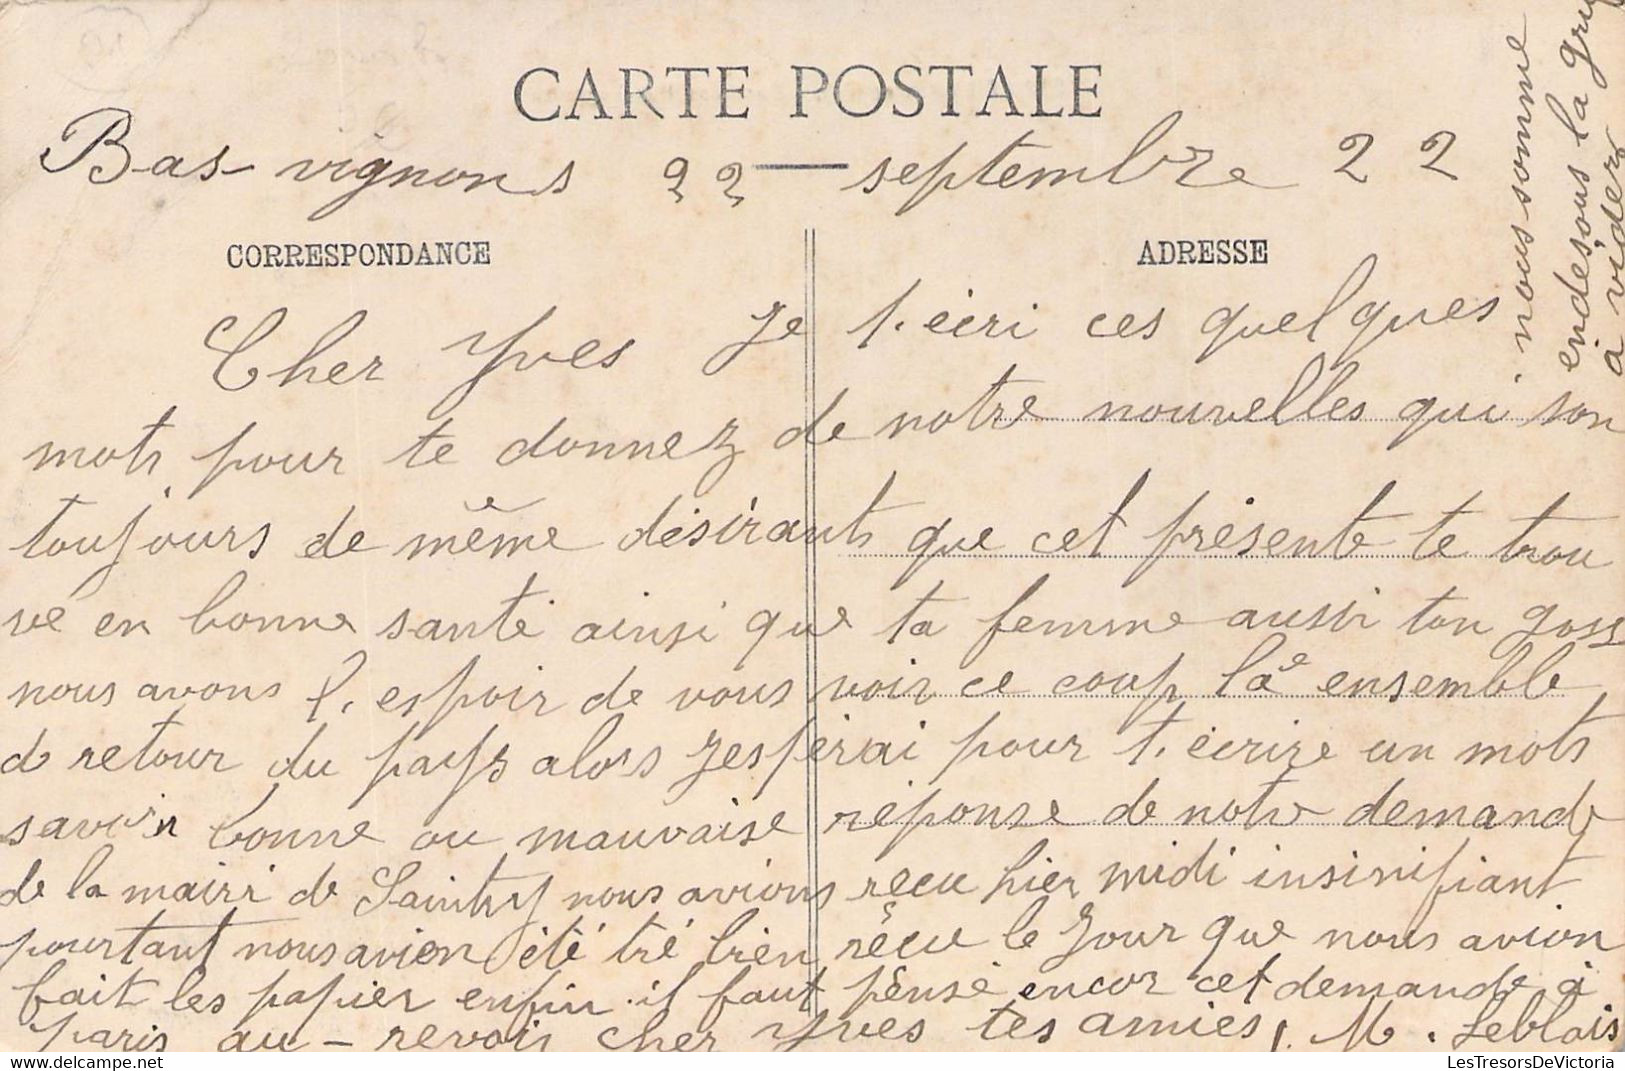 CARTE POSTALE
Bas-vignons 22 — septembre 22
CORRESPONDANCE
ADRESSE
Cher Yves Je t'écri ces quelques
mots pour te donnez de notre nouvelles qui son
toujours de même désirants que cet présente te trou
ve en bonne santé ainsi que ta femme aussi ton goss
nous avons l'espoir de vous voir ce coup là ensemble
de retour du pays alors Jespérai pour t'écrire un mots
savoir bonne ou mauvaise réponse de notre demande
de la mairi de Saintry nous avions recu hier midi insinifiant
pourtant nous avion été tré bien récu le Jour que nous avion
fait les papier enfin il faut pensé encor cet demande à
paris au-revoir cher Yves tes amies, M. Leblois
nous somme
endesous la gru
à vider
LesTresorsDeVictoria